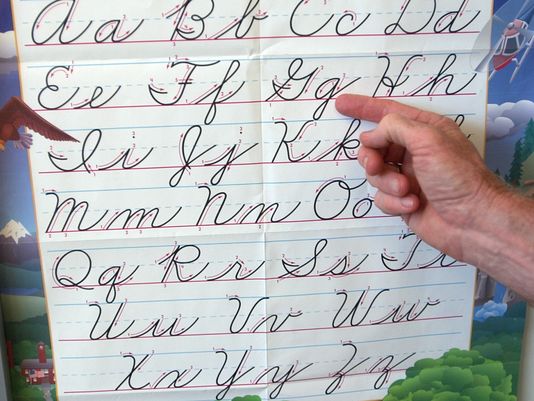 Aa Bb Cc Dd
Ee Ff Gg Hh
Ii Jj Kk
Mm Nn Oo
Qq Rr Ss Tt
Uu Vv Ww
Xx Yy Zz